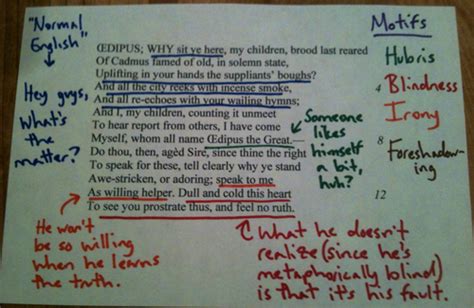 "Normal
English"
Hey guys,
what's
the
matter?
ŒDIPUS; WHY sit ye here, my children, brood last reared
Of Cadmus famed of old, in solemn state,
Uplifting in your hands the suppliants' boughs?
And all the city reeks with incense smoke, 4
And all re-echoes with your wailing hymns;
And I, my children, counting it unmeet
To hear report from others, I have come
Myself, whom all name Œdipus the Great.— 8
Do thou, then, agèd Sire, since thine the right
To speak for these, tell clearly why ye stand
Awe-stricken, or adoring; speak to me
As willing helper. Dull and cold this heart 12
To see you prostrate thus, and feel no ruth.
Someone
likes
himself
a bit,
huh?
Motifs
Hubris
Blindness
Irony
Foreshadow-
ing
He won't
be so willing
when he learns
the truth.
What he doesn't
realize (since he's
metaphorically blind)
is that it's his fault.